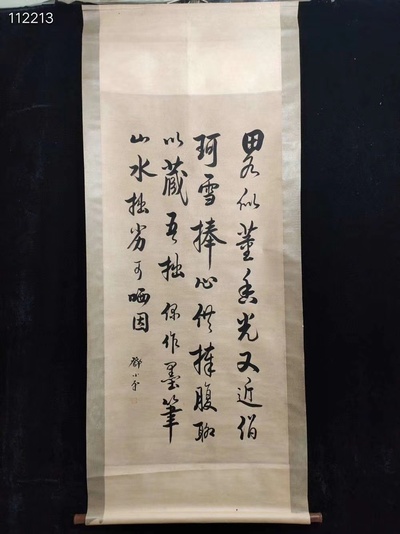 112213
畧似董香光又近僧
珂雪捧心供捧腹聊
以藏吾拙 作墨筆
山水拙劣可哂因
鄧小平